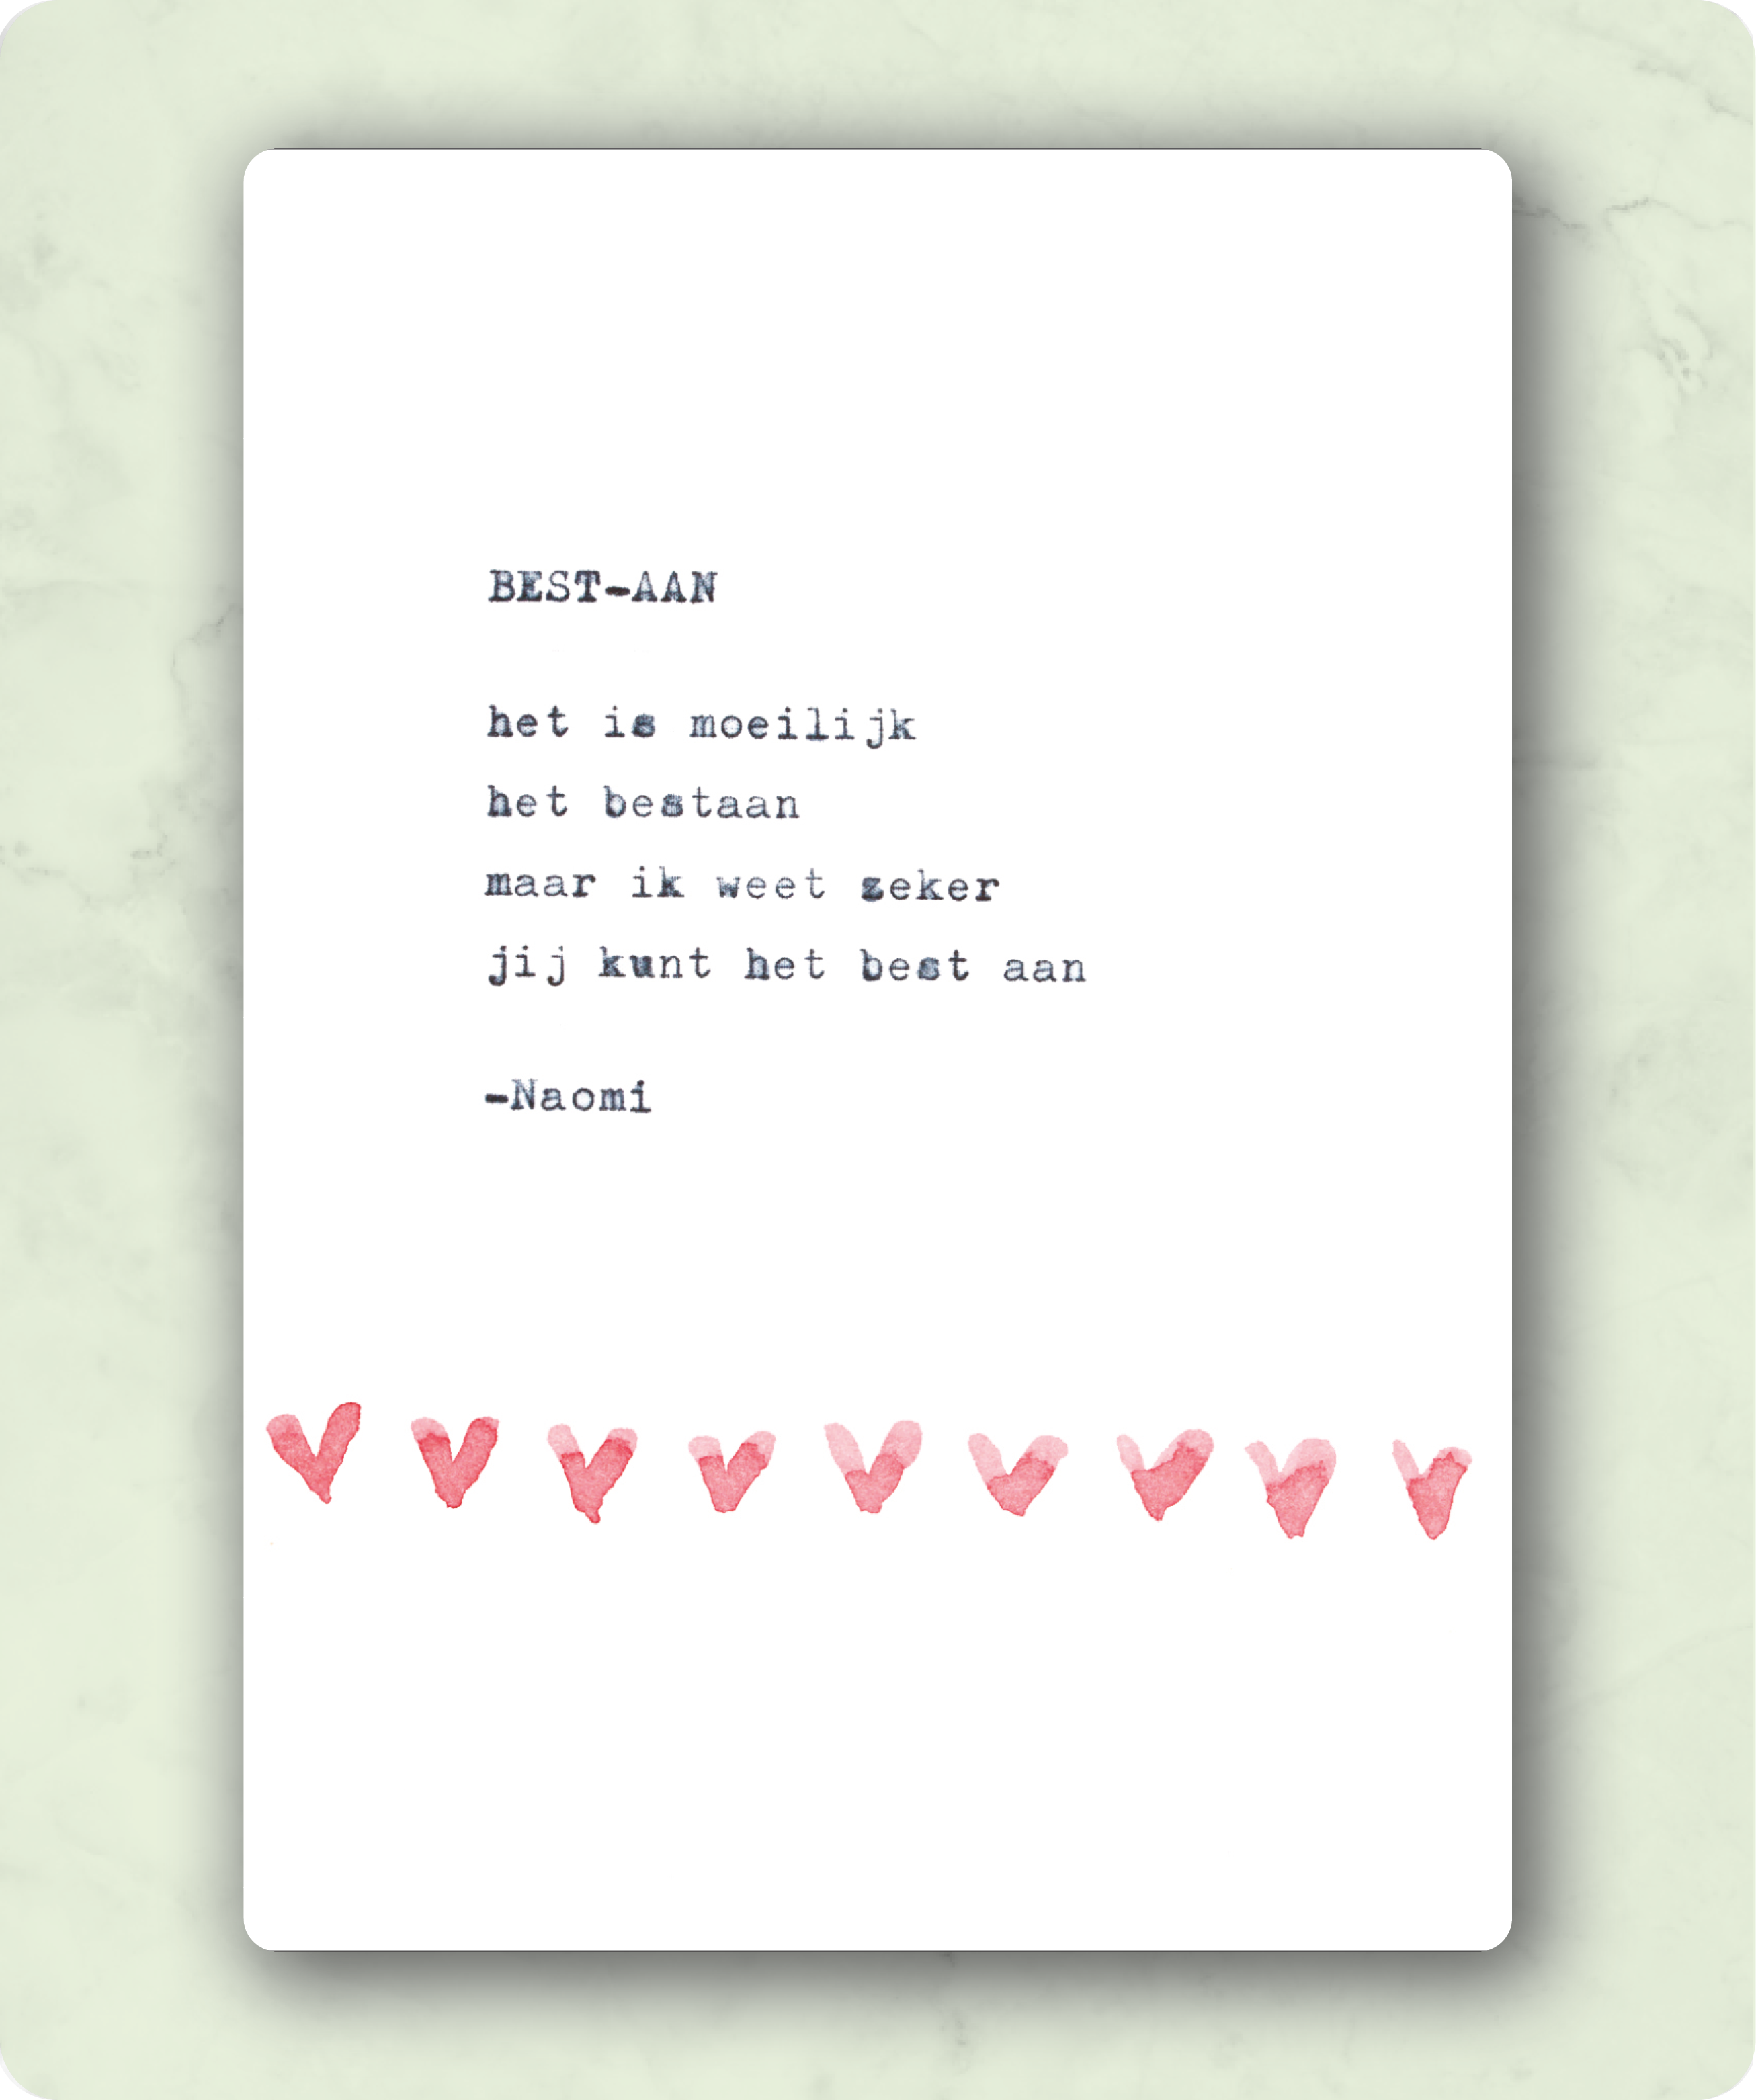 BEST-AAN
het is moeilijk
het bestaan
maar ik weet zeker
jij kunt het best aan
-Naomi